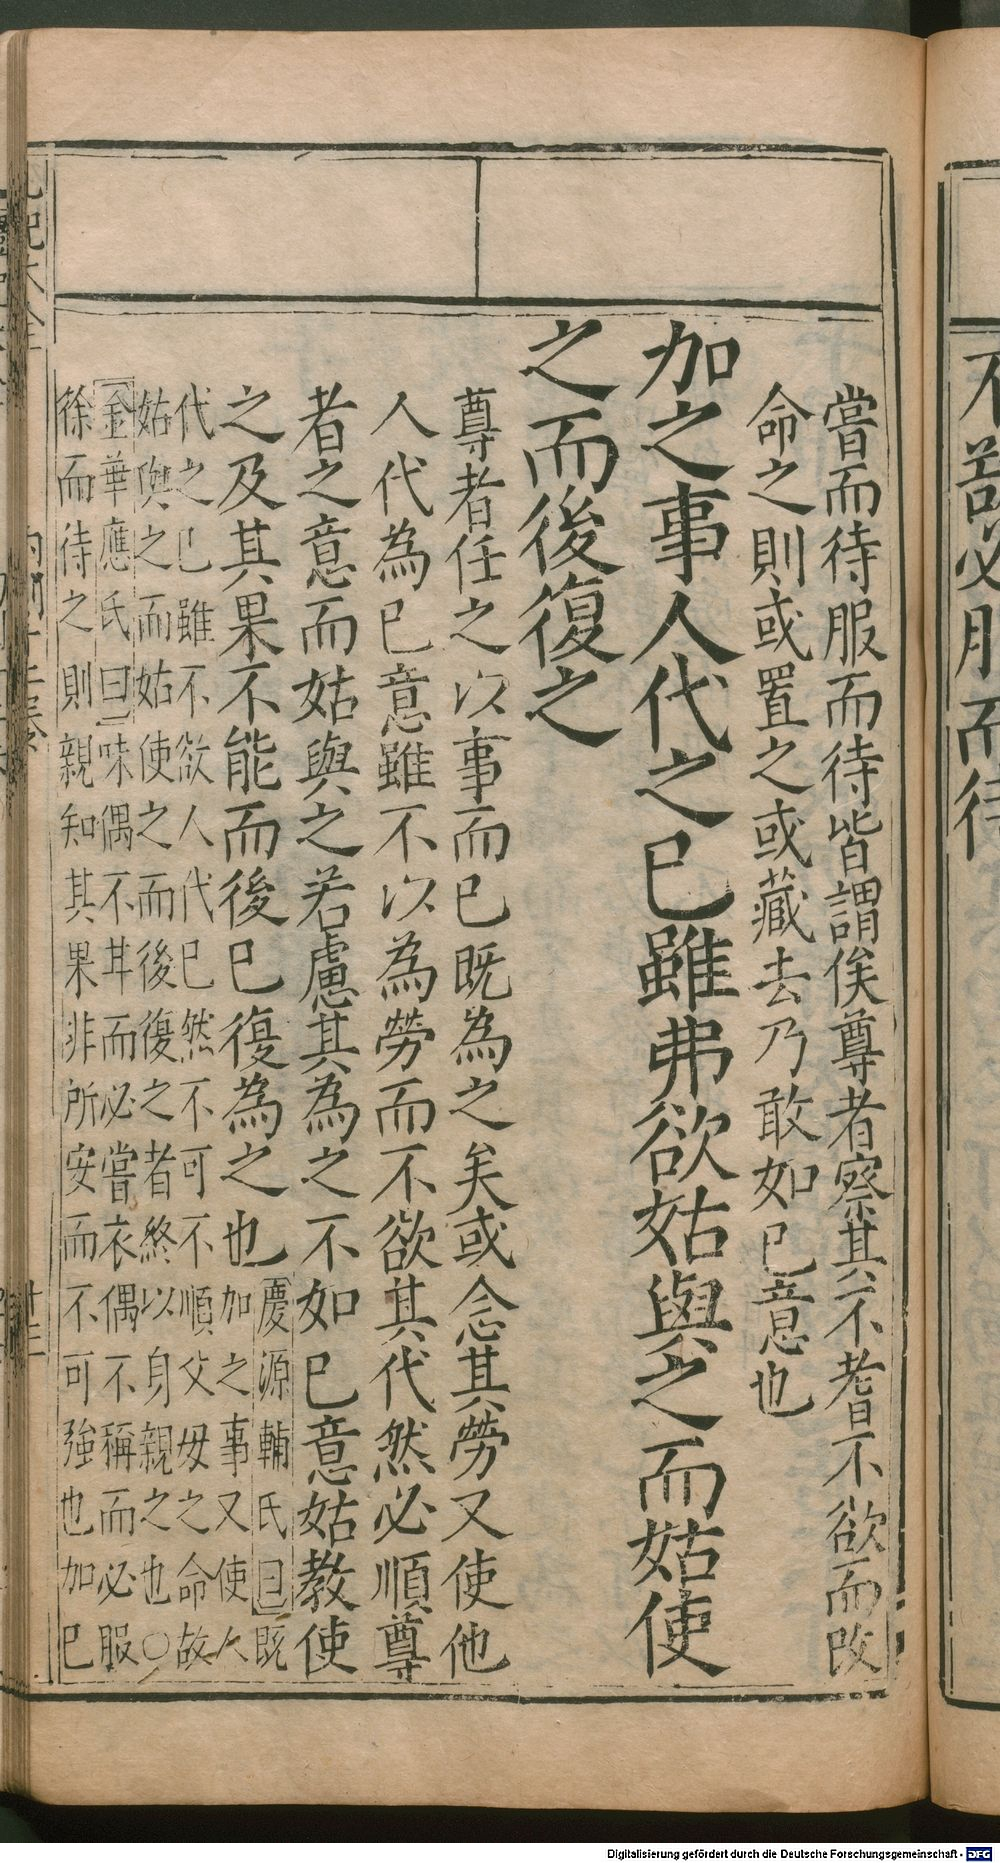 嘗而待服而待皆謂俟尊者察其不耆不欲而改
命之則或置之或藏去乃敢如己意也
加之事人代之已雖弗欲姑與之而姑使
之而後復之
尊者任之以事而已既為之矣或念其勞又使他
人代為已意雖不以為勞而不欲其代然必順尊
者之意而姑與之若慮其為之不如已意姑教使
之及其果不能而後已復為之也
慶源輔氏曰既
加之事又使人
代之已雖不欲人代已然不可不順父毋之命故
姑與之而姑使之而後復之者終以身親之也○
金華應氏曰味偶不耳而必嘗衣偶不稱而必服
徐而待之則親知其果非所安而不可強也加已
不敢必服而待
Digitalisierung gefördert durch die Deutsche Forschungsgemeinschaft - DFG